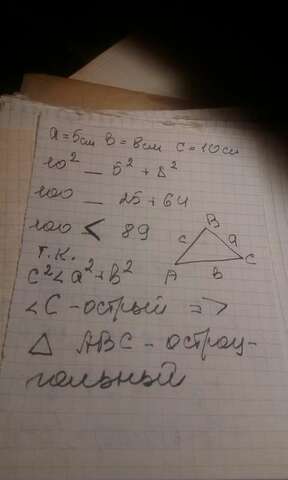 a = 5см в = 8см с = 10см
10² _ 5² + 8²
100 _ 25 + 64
100 < 89
т.к.
c² < a² + b²
<C - острый =>
△ ABC - остроу-
гольный
B
c a
A b C